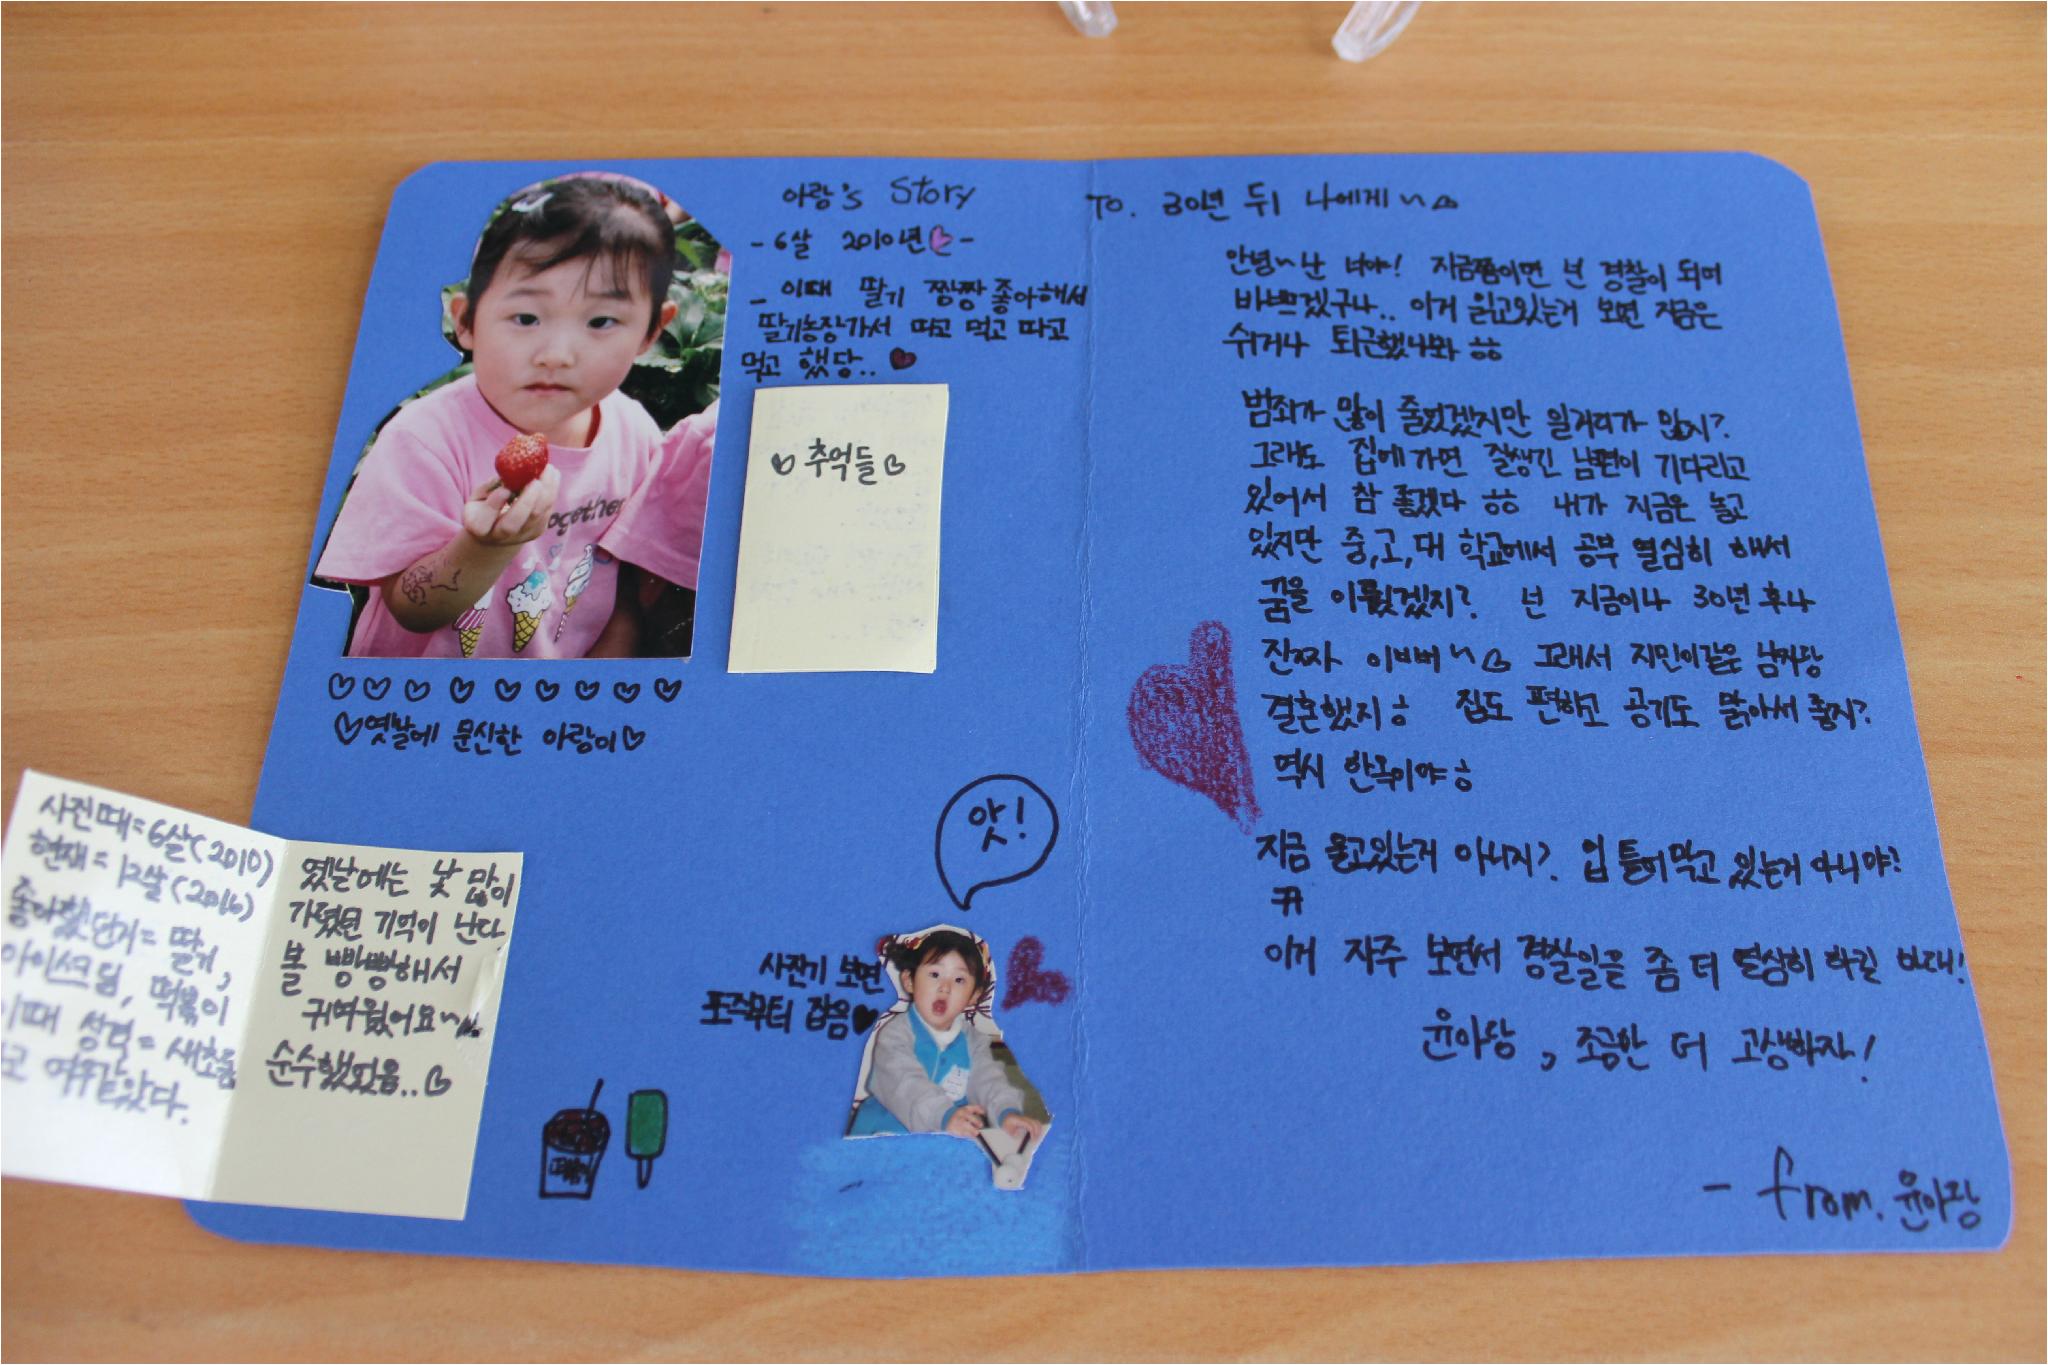 아랑's Story
- 6살 2010년 -
- 이때 딸기 짱짱 좋아해서
딸기농장가서 따고 먹고 따고
먹고 했당..
추억들
ogether
옛날에 문신한 아랑이
사진때=6살(2010)
현재=12살(2016)
좋아했던거= 딸기,
아이스크림, 떡볶이
이때 성격= 새초롬
고 여우같았다.
옛날에는 낯 많이
가렸던 기억이 난다
볼 빵빵해서
귀여웠어요~
순수했었음..
앗!
사진기 보면
포즈부터 잡음
떡볶이
To. 30년 뒤 나에게~
안녕~ 난 너야! 지금쯤이면 넌 경찰이 되어
바쁘겠구나.. 이거 읽고있는거 보면 지금은
쉬거나 퇴근했나봐 ㅎㅎ
범죄가 많이 줄었겠지만 일거리가 많지?
그래도 집에가면 잘생긴 남편이 기다리고
있어서 참 좋겠다 ㅎㅎ 내가 지금은 놀고
있지만 중,고,대 학교에서 공부 열심히 해서
꿈을 이뤘겠지? 넌 지금이나 30년 후나
진짜 이뻐~ 그래서 지민이같은 남자랑
결혼했지ㅎ 집도 편하고 공기도 맑아서 좋지?
역시 한옥이야ㅎ
지금 울고있는거 아니지? 입 틀어막고 있는거 아니야?
ㅠ
이거 자주 보면서 경찰일을 좀 더 열심히 하길 바래!
윤아랑, 조금만 더 고생하자!
- from. 윤아랑